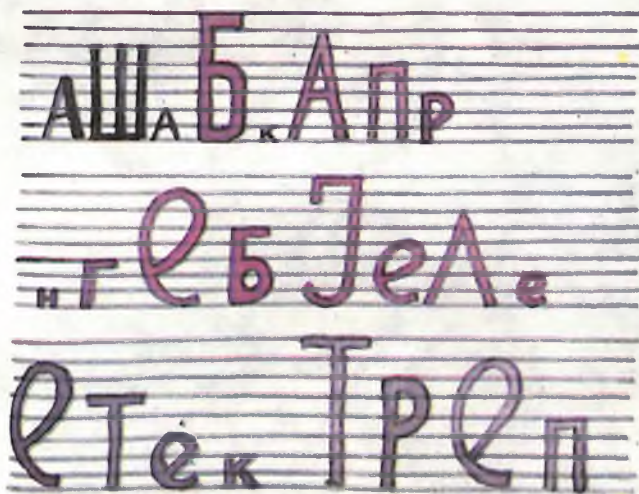 АШАБкАПР
нГеБЈеЛе
еТекТРеП